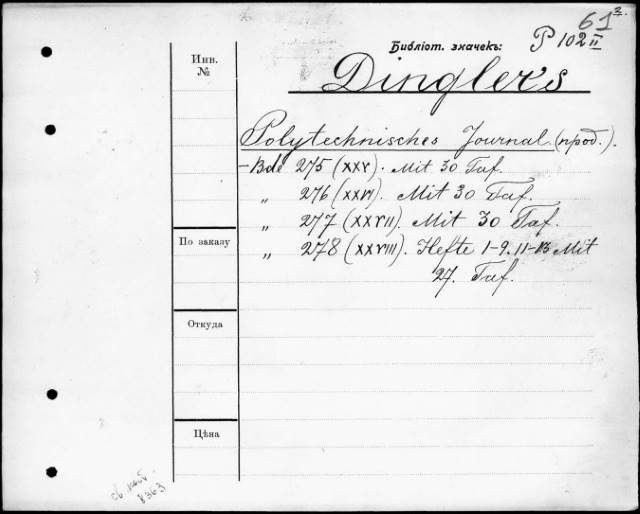 61 3.
Библіот. значекъ: P 102 II
Инв.
№
Dingler's
Polytechnisches Journal (прод.).
– Bde 275 (XXV). Mit 30 Taf.
„ 276 (XXVI). Mit 30 Taf.
„ 277 (XXVII). Mit 30 Taf.
По заказу
„ 278 (XXVIII). Hefte 1-9. 11-13 Mit
27. Taf.
Откуда
Цѣна
8363